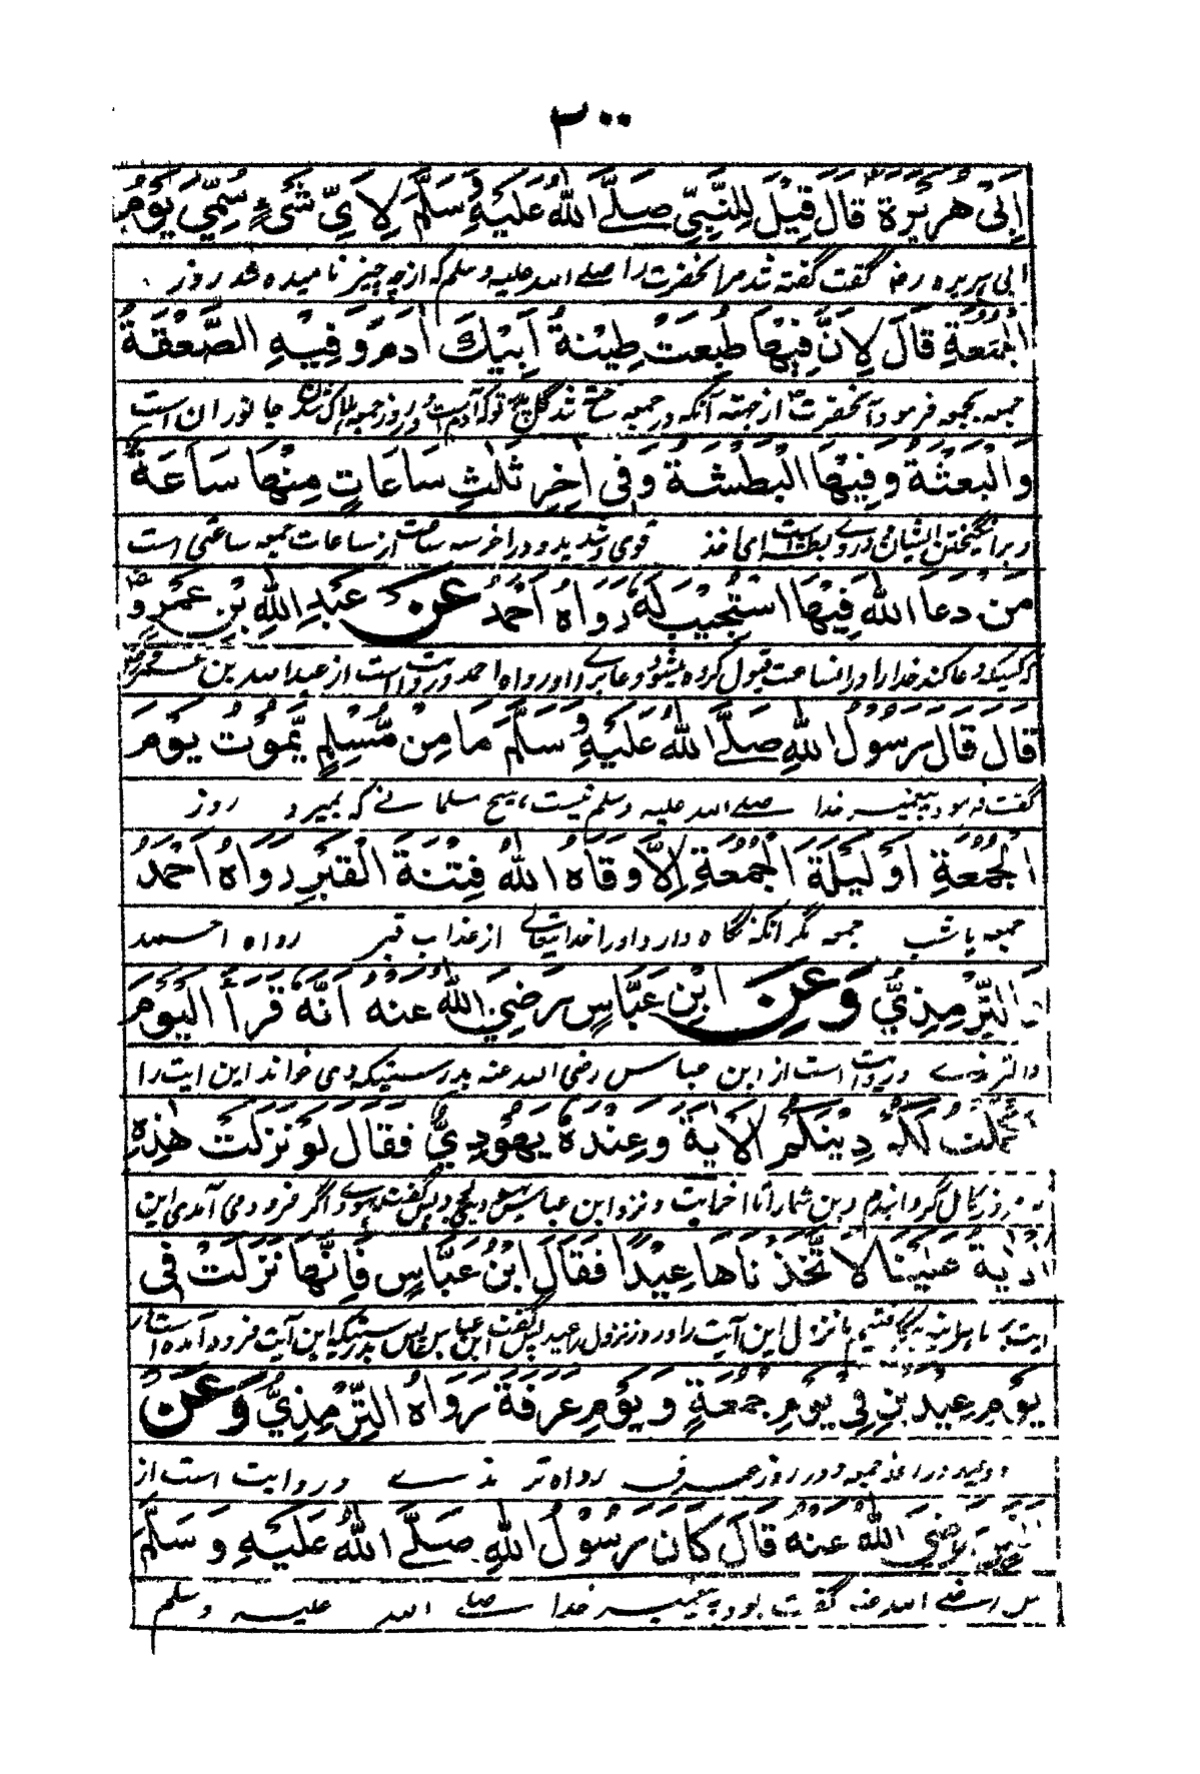 ٣٠٠
اَبِىْ هُرَيْرَةَ قَالَ قِيْلَ لِلنَّبِيِّ صَلَّے اللهُ عَلَيْهِ وَسَلَّمَ لِاَيِّ شَىْءٍ سُمِّيَ يَوْمَ
ابی ہریرہ رض گفت گفته شد مر آنحضرت را صلے اللہ علیہ وسلم کہ از چه چیز نامیده شد روز
الْجُمُعَةِ قَالَ لِاَنَّ فِيْهَا طُبِعَتْ طِيْنَةُ اَبِيْكَ اٰدَمَ وَفِيْهِ الصَّعْقَةُ
جمعه بجمعه فرمود آنحضرت از جهته آنکه در جمعه شد گل توکه آدم است و روز جمعه جانوران است
وَالْبَعْثَةُ وَفِيْهَا الْبَطْشَةُ وَفِى اٰخِرِ ثَلٰثِ سَاعَاتٍ مِنْهَا سَاعَةٌ
و برانگیختن ایشان و دروے بطشه است ای اخذ قوی و شدید و در اخر سه ساعت از ساعات جمعه ساعتی است
مَنْ دَعَا اللهَ فِيْهَا اسْتُجِيْبَ لَهُ رَوَاهُ اَحْمَدُ عَنْ عَبْدِ اللهِ بْنِ عَمْرٍو
که کسیکه دعا کند خدا را در انساعت قبول کرده میشود دعا برے او رواه احمد و روایت است از عبد اللہ بن عمرو
قَالَ قَالَ رَسُوْلُ اللهِ صَلَّے اللهُ عَلَيْهِ وَسَلَّمَ مَا مِنْ مُّسْلِمٍ يَّمُوْتُ يَوْمَ
گفت فرمود پیغمبر خدا صلے اللہ علیہ وسلم نیست ہیچ مسلمانے کہ بمیرد روز
الْجُمُعَةِ اَوْ لَيْلَةَ الْجُمُعَةِ اِلَّا وَقَاهُ اللهُ فِتْنَةَ الْقَبْرِ رَوَاهُ اَحْمَدُ
جمعه یا شب جمعه مگر آنکه نگاه دارد او را خدا تعالے از عذاب قبر رواه احمد
وَالتِّرْمِذِيُّ وَعَنِ ابْنِ عَبَّاسٍ رَضِيَ اللهُ عَنْهُ اَنَّهُ قَرَأَ الْيَوْمَ
والترمذے و روایت است از ابن عباس رضی اللہ عنہ بدرستیکه وی خواند این ایت را
اَكْمَلْتُ لَكُمْ دِيْنَكُمْ الْاٰيَةَ وَعِنْدَهُ يَهُوْدِيٌّ فَقَالَ لَوْ نَزَلَتْ هٰذِهِ
کامل گردانیدم دین شمارا تا اخر ایت و نزد ابن عباس یهودی پس گفت یهودے اگر فرود می آمدی این
الْاٰيَةُ عَلَيْنَا لَاتَّخَذْنَاهَا عِيْدًا فَقَالَ ابْنُ عَبَّاسٍ فَاِنَّهَا نَزَلَتْ فِى
ایت بر ما هر اینه میگرفتیم ما نزول این آیت را و روز نزول را عید پس گفت ابن عباس پس بدرستیکه این آیت فرود آمده است در
يَوْمِ عِيْدَيْنِ فِيْ يَوْمِ جُمُعَةٍ وَيَوْمِ عَرَفَةَ رَوَاهُ التِّرْمِذِيُّ وَعَنْ
دو عید در روز جمعه و در روز عرفہ رواه ترمذے و روایت است از
اَنَسٍ رَضِيَ اللهُ عَنْهُ قَالَ كَانَ رَسُوْلُ اللهِ صَلَّے اللهُ عَلَيْهِ وَسَلَّمَ
رضے اللہ عنہ گفت بود پیغمبر خدا صلے اللہ علیہ وسلم